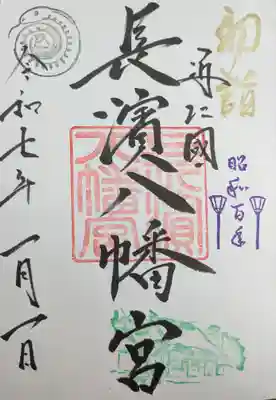 初詣
近江國
昭和百年
長濱八幡宮
長濱八幡宮
令和七年一月一日